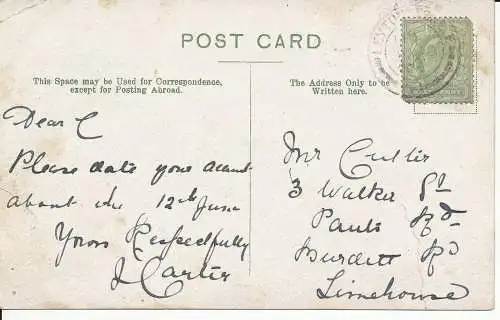 POST CARD
This Space may be Used for Correspondence,
except for Posting Abroad.
The Address Only to be
Written here.
Dear C
Please date your
about the 12th June
Yours Respectfully
J Carter
Mr Cutler
3 Walker St
Pauls Rd
Burdett Rd
Limehouse